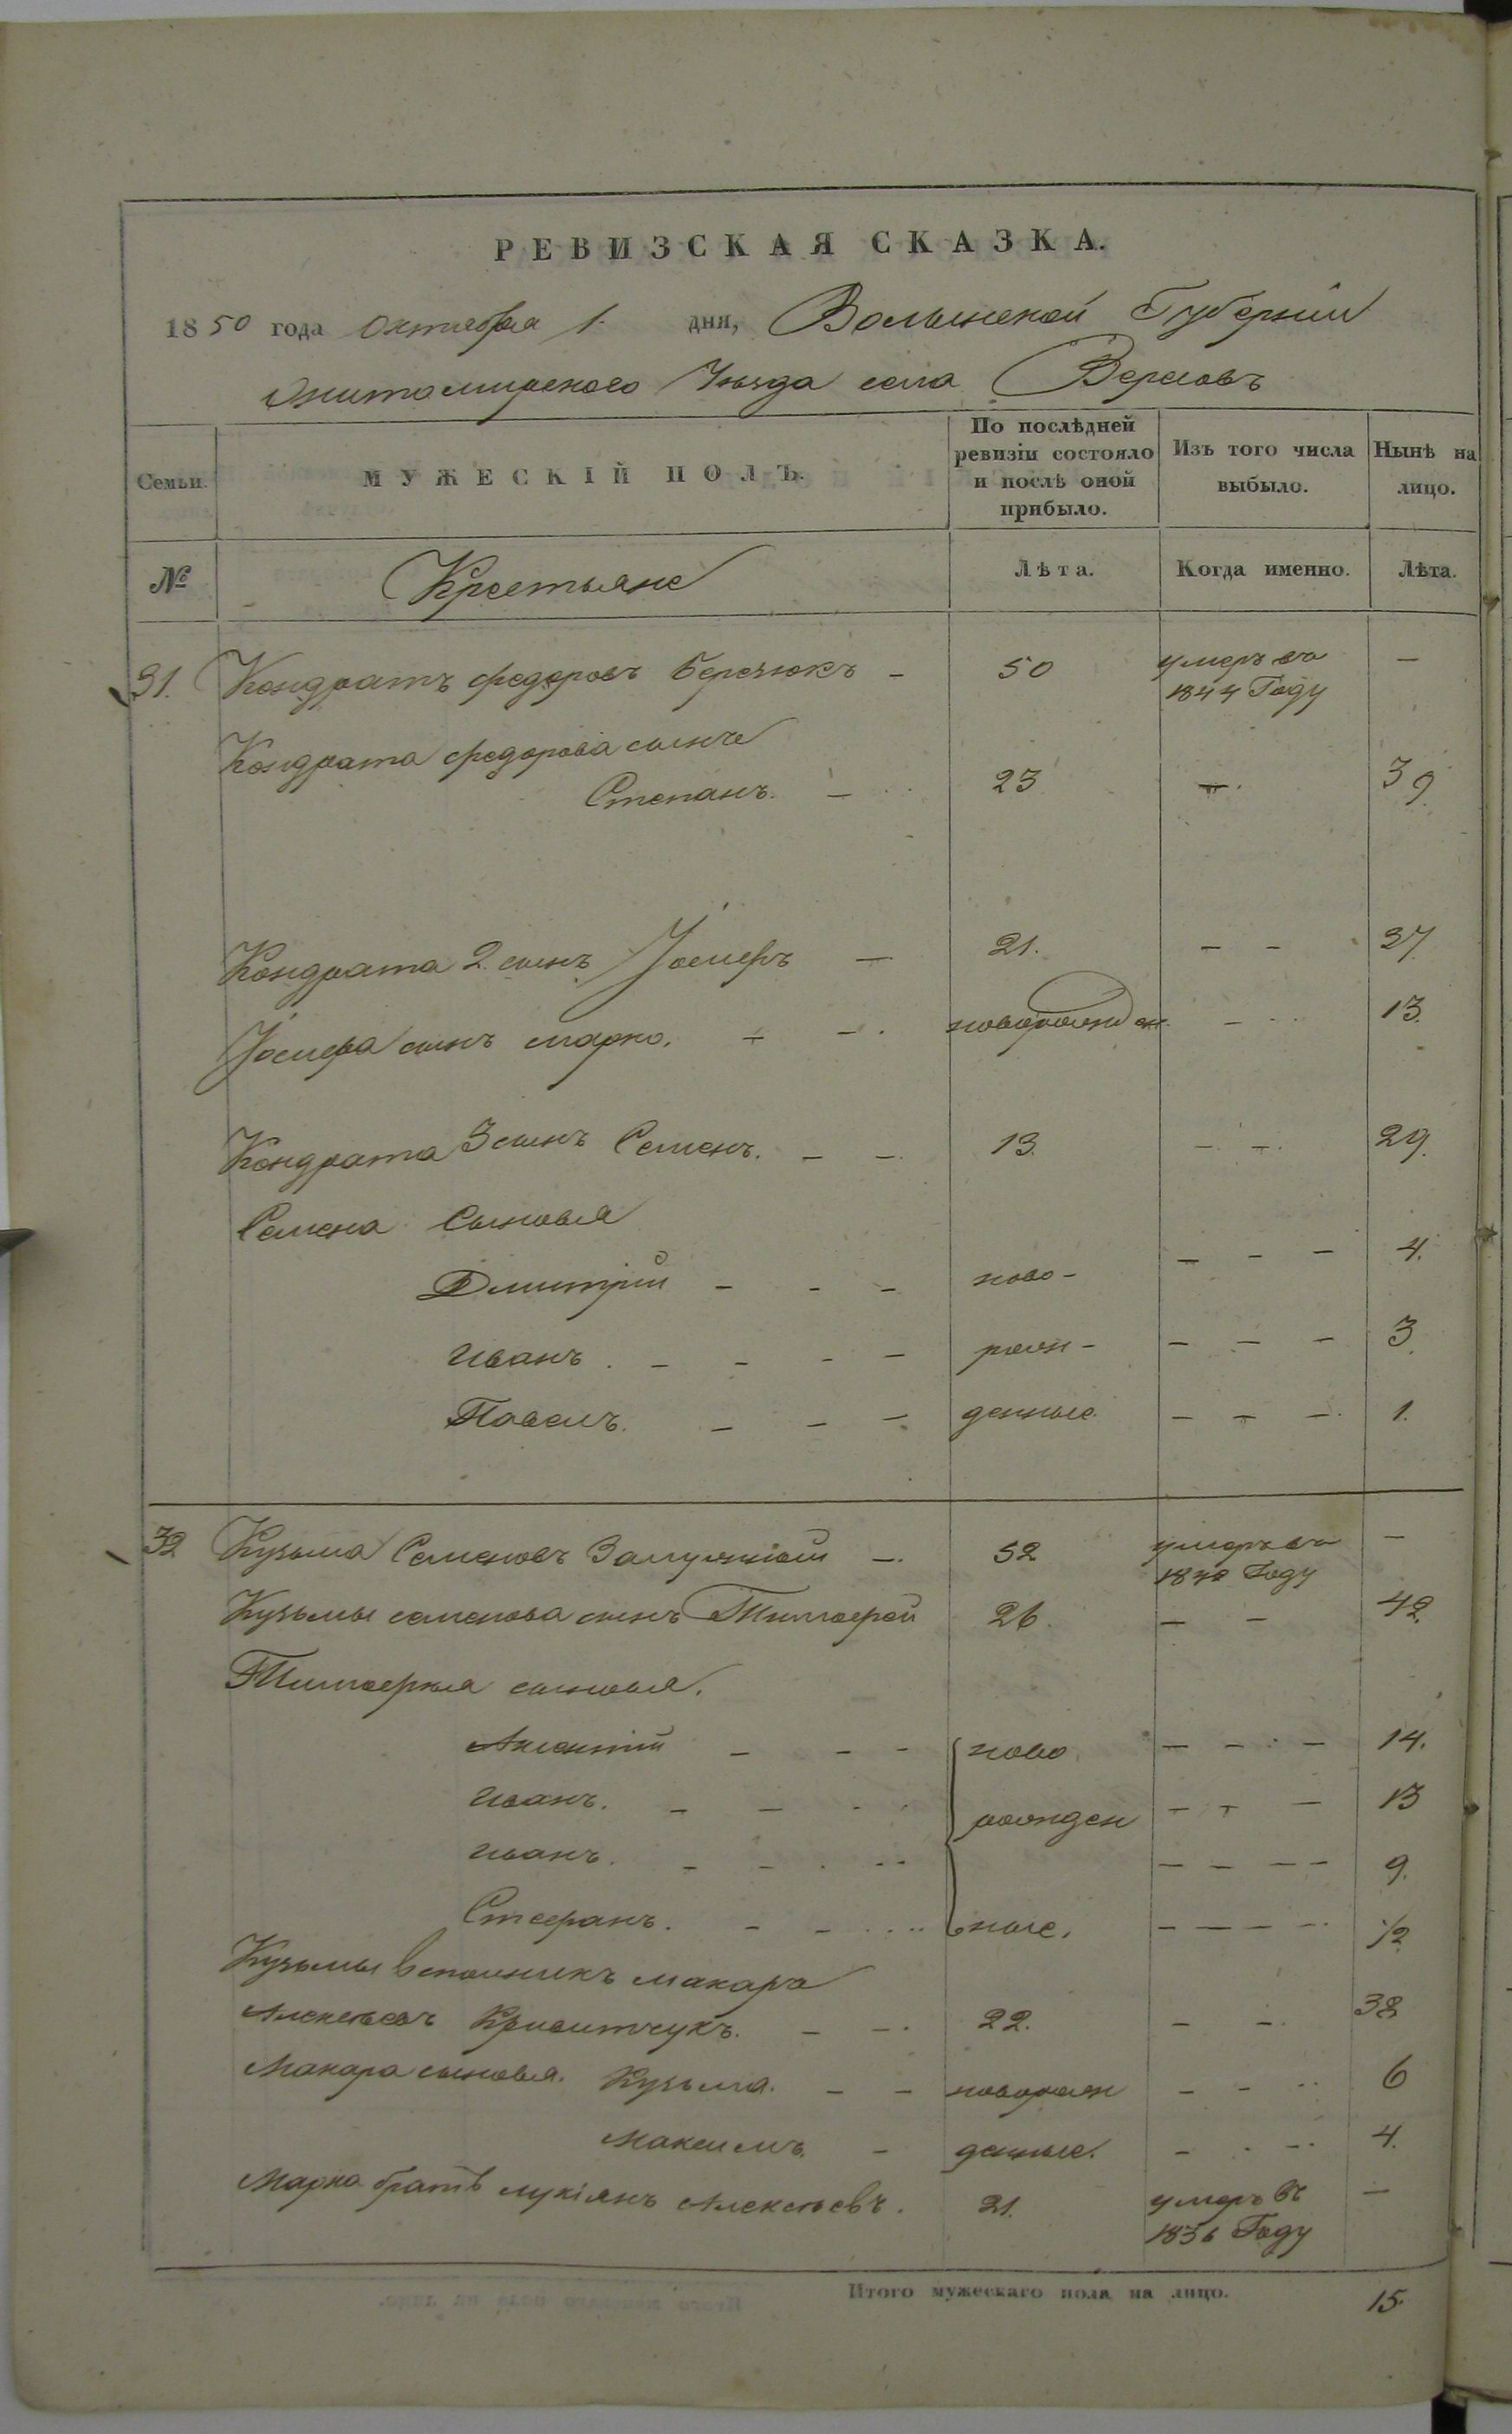 РЕВИЗСКАЯ СКАЗКА.
1850 года Октября 1. дня, Волынской Губерніи
Житомирского Уезда села Вересовъ
Семьи. МУЖЕСКІЙ ПОЛЪ. По послѣдней ревизіи состояло и послѣ оной прибыло. Изъ того числа выбыло. Нынѣ на лицо.
№ Крестьяне Лѣта. Когда именно. Лѣта.
31. Кондратъ федоровъ Беречюкъ - 50 умеръ въ 1844 Году —
Кондрата федорова сынъ
Степанъ. — 23 —. 39.
Кондрата 2. сынъ Іосифъ — 21. — — 37
Іосифа сынъ марко. — —. новорожден. — 13.
Кондрата 3 сынъ Семенъ. — —. 13. — —. 29.
Семена Сыновья
Дмитрій — — — ново- — — — 4.
Иванъ. — — — — рож- — — — 3.
Павелъ. — — — денные. — — —. 1.
32 Кузьма Семеновъ —. 52 умеръ въ 1840 Году —
Кузьмы семенова сынъ Тимофей 26. — — 42.
Тимофея сыновья.
— — — ново — — — 14.
Иванъ. — — рожден — — — 13
Иванъ. — — — — — — 9.
Стефанъ. — — ные. — — — —. 1/2
Кузьмы макаръ
Алексѣевъ Кривитчукъ. — —. 22. — —. 38
Макара сыновья. Кузьма. — — новорож — — 6
Максимъ. — денные. — — 4.
братъ лукіянъ Алексѣевъ. 21. умеръ въ 1836 Году —
Итого мужескаго пола на лицо. 15.